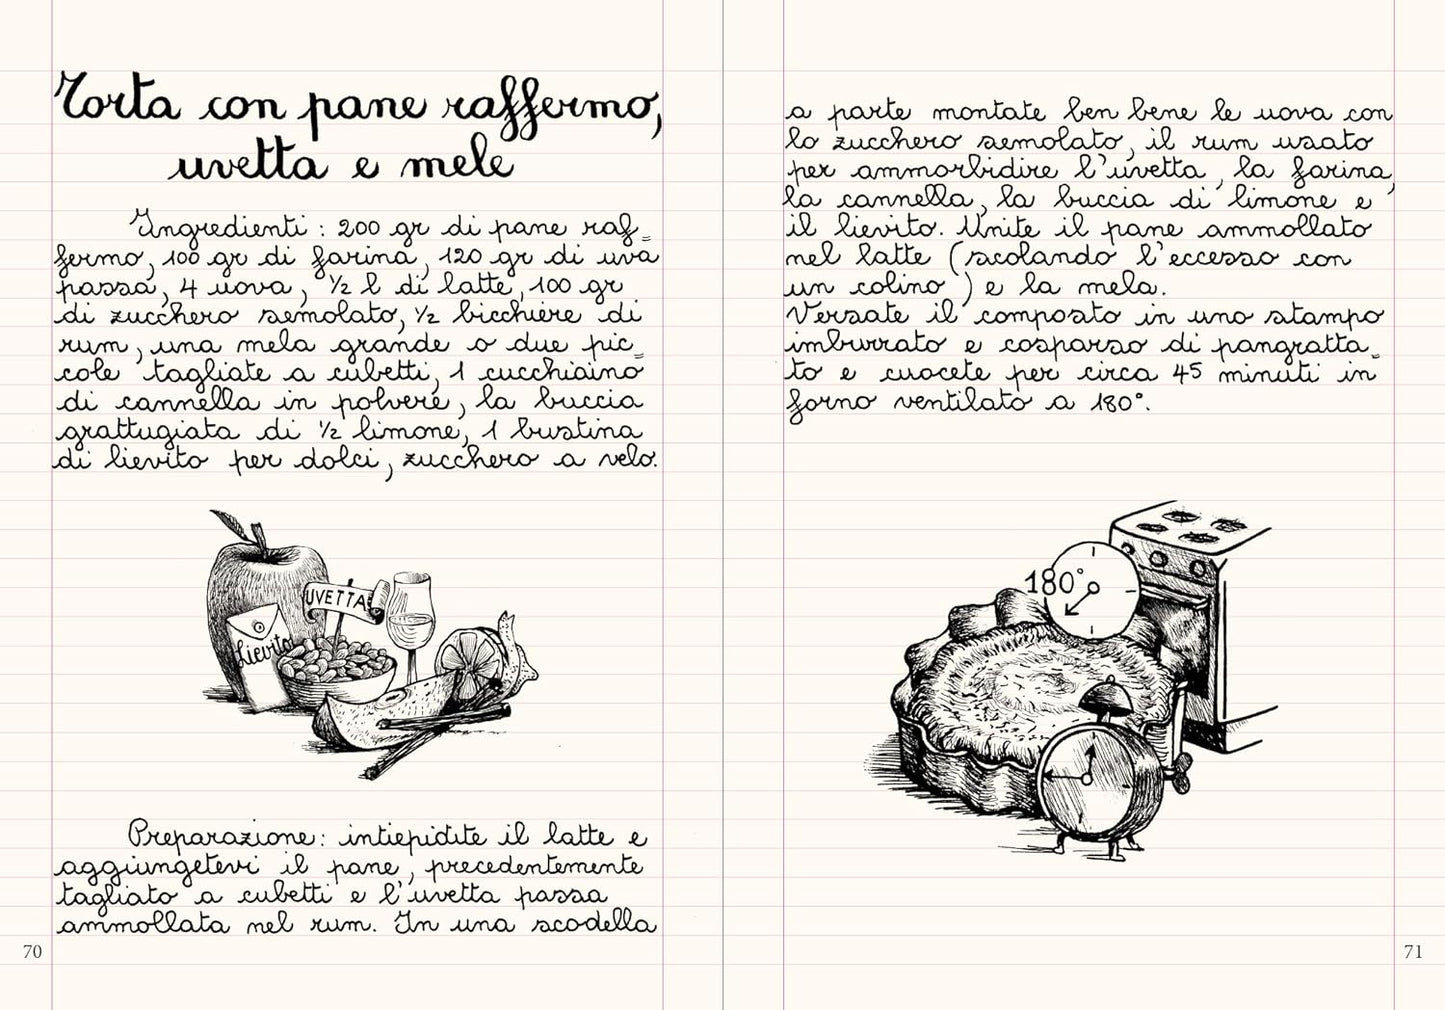 Torta con pane raffermo,
uvetta e mele
Ingredienti : 200 gr di pane raf=
fermo, 100 gr di farina, 120 gr di uva
passa, 4 uova, ½ l di latte, 100 gr
di zucchero semolato, ½ bicchiere di
rum, una mela grande o due pic=
cole tagliate a cubetti, 1 cucchiaino
di cannella in polvere, la buccia
grattugiata di ½ limone, 1 bustina
di lievito per dolci, zucchero a velo.
UVETTA
Lievito
Preparazione: intiepidite il latte e
aggiungetevi il pane, precedentemente
tagliato a cubetti e l'uvetta passa
ammollata nel rum. In una scodella
70
a parte montate ben bene le uova con
lo zucchero semolato, il rum usato
per ammorbidire l'uvetta, la farina,
la cannella, la buccia di limone e
il lievito. Unite il pane ammollato
nel latte (scolando l'eccesso con
un colino) e la mela.
Versate il composto in uno stampo
imburrato e cosparso di pangratta=
to e cuocete per circa 45 minuti in
forno ventilato a 180°.
180°
71